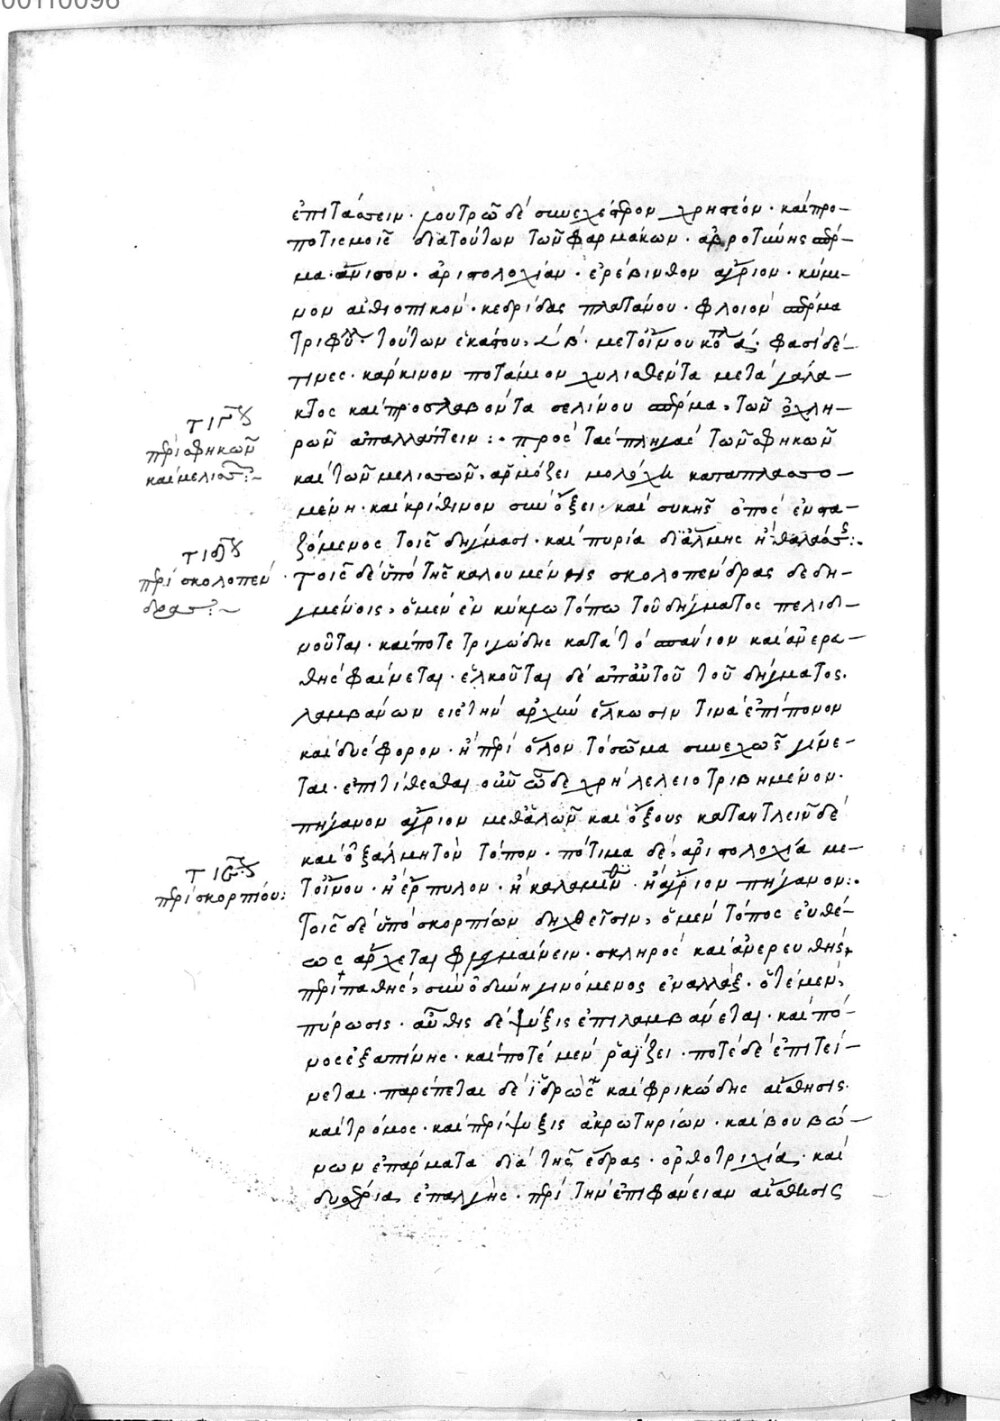 00110098
ἐπιτάσσειν. λουτρῶ δὲ συνεχέστερον χρηστέον. καὶ προ-
ποτισμοῖς διὰ τούτων τῶν φαρμάκων. ἀβροτόνης σπέρ-
μα. ἄνισον. ἀριστολοχίαν. ἐρέβινθον ἄγριον. κύμι-
νον αἰθιοπικόν. κεδρίδας πλατάνου. φλοιὸν σπέρμα
τριφύλ. τούτων ἑκάστου, β. μετοἴνου κο α. φασὶ δέ
τινες. καρκίνον ποτάμιον χυλισθέντα μετὰ γάλα-
κτος καὶ προσλαβόντα σελίνου σπέρμα, τῶν ὀχλη-
ρῶν ἀπαλλάττειν:. πρὸς τὰς πληγὰς τῶν σφηκῶν
καὶ τῶν μελισσῶν, ἁρμόζει μολόχη καταπλασσο-
μένη. καὶ κρίθινον σὺν ὄξει. καὶ συκῆς ὀπὸς ἐνστα-
ζόμενος τοῖς δήγμασι. καὶ πυρία δι' ἅλμης ἢ θαλάσσης:.
τοῖς δὲ ὑπὸ τῆς καλουμένης σκολοπένδρας δεδη-
γμένοις, ὁ μὲν ἐν κύκλω τόπω τοῦ δήγματος πελιδ-
νοῦται. καὶ ποτε τρυγώδης κατὰ τὸ σπάνιον καὶ ἀνερυ-
θὴς φαίνεται. ἑλκοῦται δὲ ἀπ' αὐτοῦ τοῦ δήγματος.
λαμβάνων εἰς τὴν ἀρχὴν ἕλκωσιν τινὰ ἐπίπονον
καὶ δύσφορον. ἢ περὶ ὅλον τὸ σῶμα συνεχῶς γίνε-
ται. ἐπιτίθεσθαι οὖν ὧδε χρὴ λελειοτριβημένον.
πήγανον ἄγριον μεθ' ἁλῶν καὶ ὄξους καταντλεῖν δὲ
καὶ ὀξάλμη τὸν τόπον. πότιμα δὲ, ἀριστολοχία με-
τοἴνου. ἢ ἕρπυλον. ἢ καλαμίνθην. ἢ ἄγριον πήγανον:.
τοῖς δὲ ὑπὸ σκορπίων δηχθεῖσιν, ὁ μὲν τόπος εὐθέ-
ως ἄρχεται φλεγμαίνειν. σκληρὸς καὶ ἀνερευθὴς,
περιπαθὴς, σὺν ὀδύνη γινόμενος ἐναλλάξ. ὁτὲ μὲν,
πύρωσις. αὖθις δὲ ψύξις ἐπιλαμβάνεται. καὶ πό-
νος ἐξαπίνης. καὶ ποτὲ μὲν ῥαΐζει. ποτὲ δὲ ἐπιτεί-
νεται. παρέπεται δὲ ἱδρὼς καὶ φρικώδης αἴσθησις.
καὶ τρόμος. καὶ περίψυξις ἀκρωτηρίων. καὶ βουβώ-
νων ἐπάρματα διὰ τῆς ἕδρας. ὀρθοτριχία. καὶ
δυσχρία ἐπαλγὴς. περὶ τὴν ἐπιφάνειαν αἴσθησις
περὶ σφηκῶν
καὶ μελισσ:~
περὶ σκολοπέν
δρασ:~
περὶ σκορπίου: